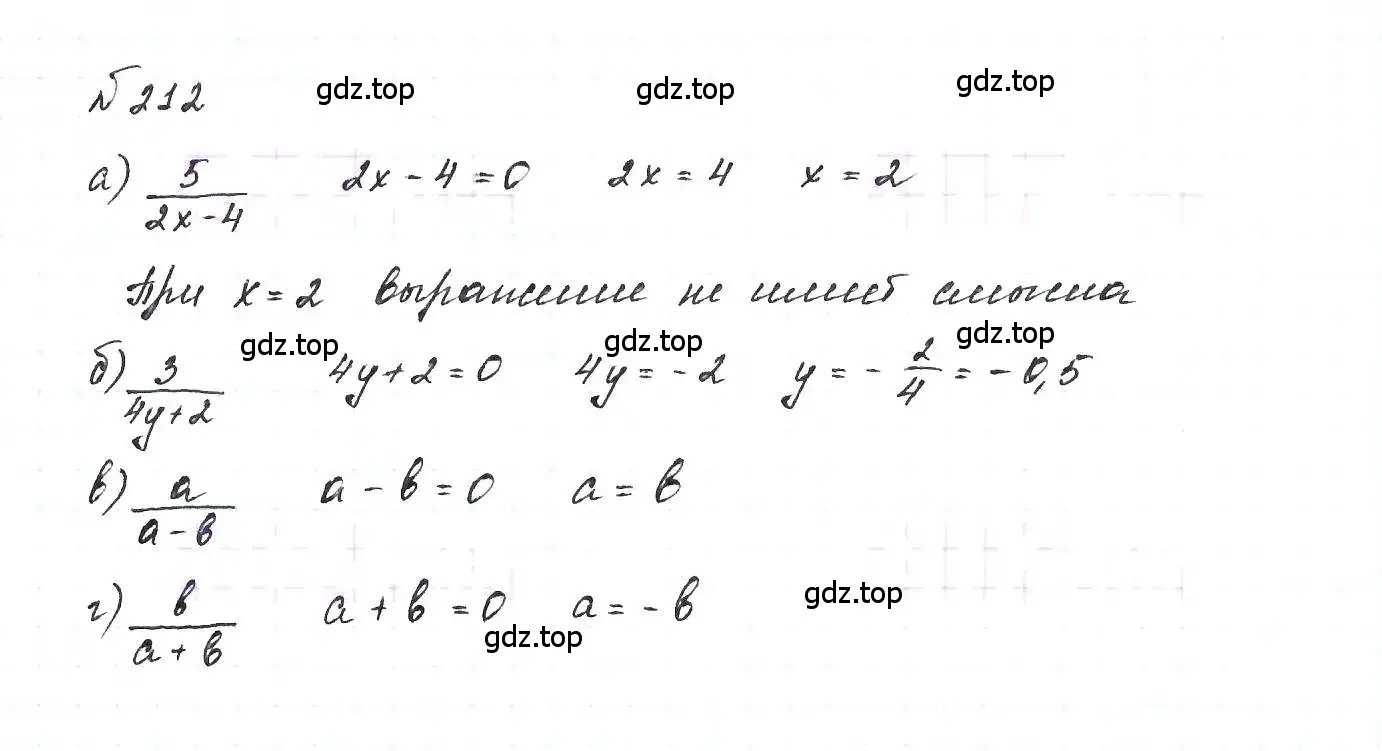 № 212 gdz.top gdz.top gdz.top
а) 5/(2x-4) 2x - 4 = 0 2x = 4 x = 2
При x = 2 выражение не имеет смысла
gdz.top gdz.top gdz.top
б) 3/(4y+2) 4y + 2 = 0 4y = - 2 y = - 2/4 = - 0,5
в) a/(a-в) a - в = 0 a = в
г) в/(a+в) a + в = 0 a = - в gdz.top
gdz.top